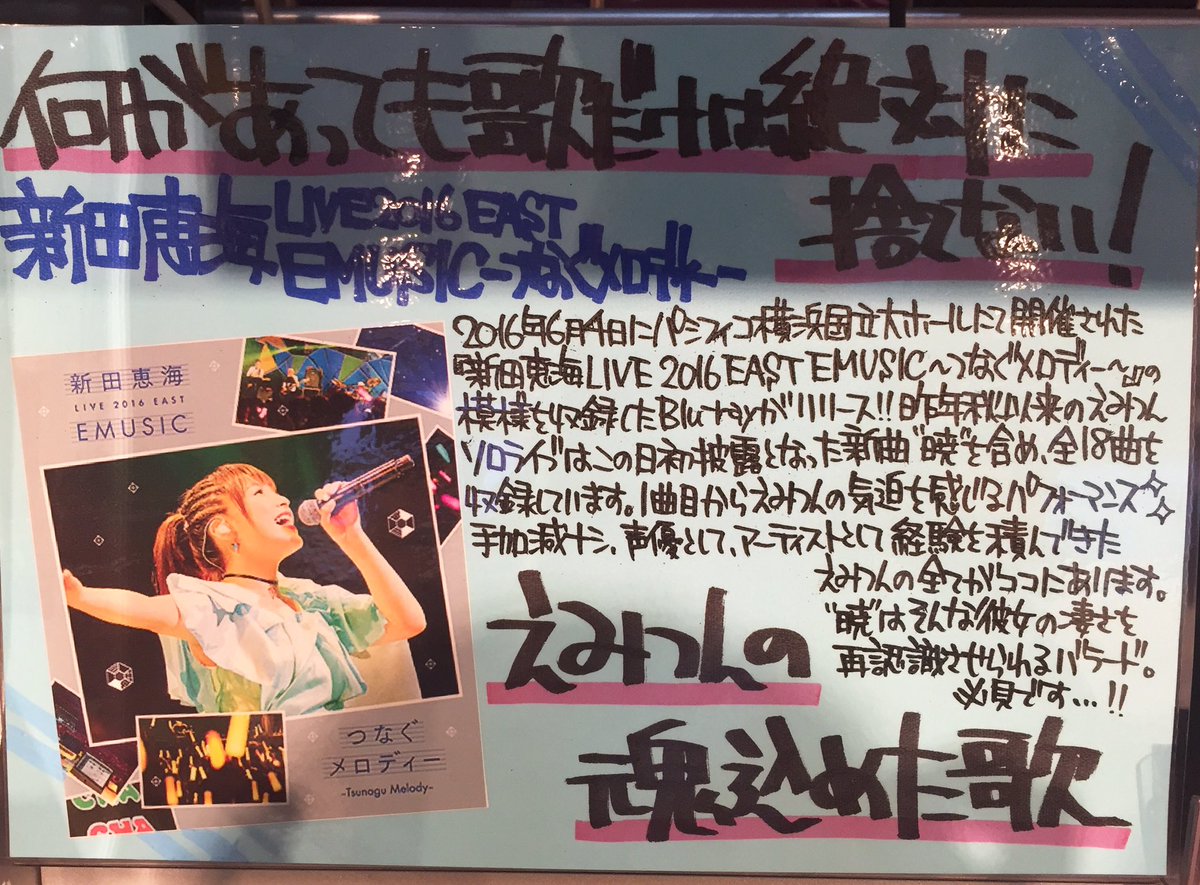 何があっても歌だけは絶対に
捨てない!
新田恵海 LIVE2016 EAST
EMUSIC～つなぐメロディー～
2016年6月4日にパシフィコ横浜国立大ホールにて開催された
『新田恵海LIVE 2016 EAST EMUSIC～つなぐメロディー～』の
模様を収録したBlu-rayがリリース!!昨年秋以来のえみつん
ソロライブはこの日初披露となった新曲"暁"を含め、全18曲を
収録しています。1曲目からえみつんの気迫を感じるパフォーマンス
手加減ナシ、声優として、アーティストとして経験を積んできた
えみつんの全てがココにあります。
"暁"はそんな彼女の凄さを
再認識させられるバラード。
必見です…!!
えみつんの
魂込めた歌
新田恵海
LIVE 2016 EAST
EMUSIC
つなぐ
メロディー
-Tsunagu Melody-
CHA
CHA